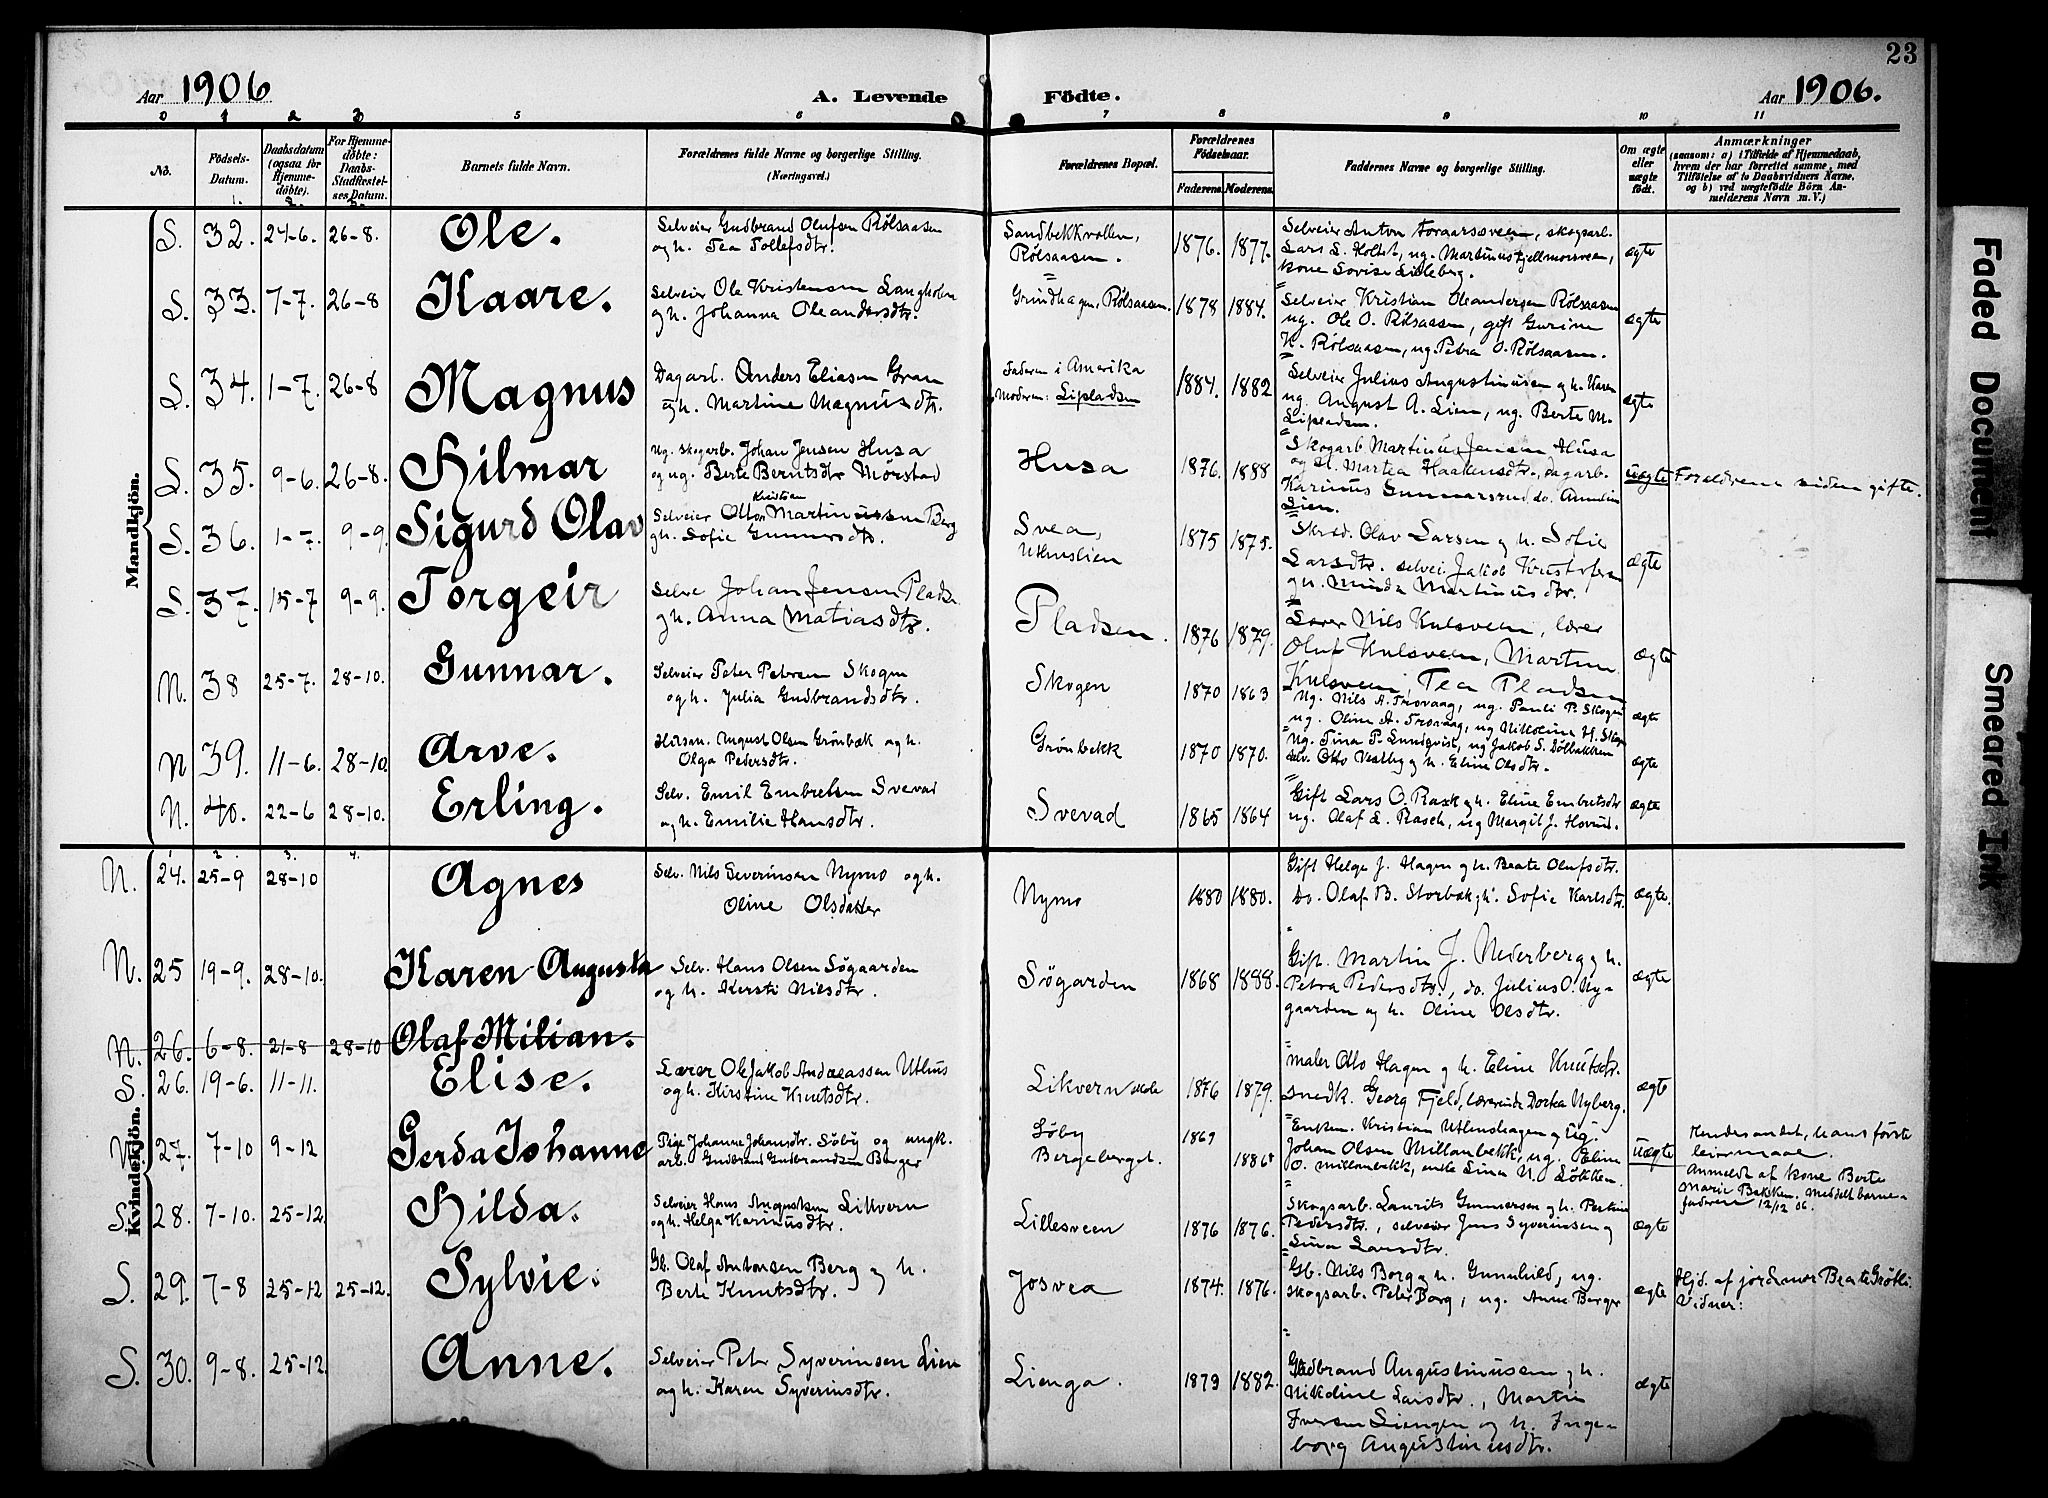 23
Aar 1906
A. Levende Födte.
Aar 1906.
0 1 2 3 5 6 7 8 9 10 11
No.
Födsels-Datum.
Daabsdatum (ogsaa for Hjemme-döbte).
For Hjemme-döbte: Daabs-Stadfæstel-ses Datum.
Barnets fulde Navn.
Forældrenes fulde Navne og borgerlige Stilling.
(Næringsvei.)
Forældrenes Bopæl.
Forældrenes Födselsaar.
Faderens. Moderens.
Faddernes Navne og borgerlige Stilling.
Om ægte eller uægte födt.
Anmærkninger
(saasom: a) i Tilfælde af Hjemmedaab, hvem der har forrettet samme, med Tilföielse af to Daabsvidners Navne, og b) ved uægtefödte Börn An-melderens Navn m. V.)
Mandkjön.
S. 32. 24-6. 26-8. Ole.
Selveier Gudbrand Olufsen Rølsaasen
og h. Tea Tollefsdtr.
Sandbekkvollen,
Rølsaasen.
1876. 1877.
Selveier Anton Foraarsveen, skogsarb.
Lars L. Holtet, ug. Martinus Fjellmorsveen,
kone Lovise Lilleberg.
ægte
S. 33. 7-7. 26-8 Kaare.
Selveier Ole Kristensen Langholen
og h. Johanna Oleandersdtr.
Grindhagen, Rølsaasen.
1878 1884.
Selveier Kristian Oleandersen Rølsaasen
ug. Ole O. Rølsaasen, gift Gurine
K. Rølsaasen, ug Petra O. Rølsaasen.
ægte
S. 34. 1-7. 26-8 Magnus
Dagarb. Anders Eliasen Gran
og h. Martine Magnusdtr.
Faderen i Amerika
Moderen: Lipladsen
1884. 1882
Selveier Julius Augustinusen og h. Karen
ug. August A. Lien, ug. Berte M.
Lipladsen.
ægte
S. 35. 9-6. 26-8. Hilmar
Ug. skogarb. Johan Jensen Husa
og ug. Berte Berntsdtr Mørstad
Husa
1876. 1888
Skogarb Martinus Jensen Husa
og h. Martea Haakensdtr., dagarb.
Karinus Gunnarsrud do. Annelin
Lien.
uægte Forældrene siden gifte.
S. 36. 1-7. 9-9. Sigurd Olav
Kristian
Selveier Otto Martinussen Berg
og h. Sofie Gunnersdtr.
Svea,
Uthuslien
1875 1875.
Skred. Olav Larsen og h. Sofie
Larsdtr. selvei. Jakob Kristofersen
og h. Minda Martinusdtr.
ægte
S. 37. 15-7 9-9. Torgeir
Selve Johan Jensen Pladsen
og h. Anna Matiasdtr.
Pladsen.
1876 1879.
Lærer Nils Kulsveen, lærer
Oluf Kulsveen, Martin
Kulsveen, Tea Pladsen
ægte
N. 38 25-7. 28-10. Gunnar.
Selveier Peter Petersen Skogen
og h. Julia Gudbrandsdtr.
Skogen
1870 1863
Ug. Nils A. Trovaag, ug. Pauli P. Skogen
ug. Oline A. Trovaag, ug Nikoline H. Skogen
ægte
N 39. 11-6. 28-10. Arve.
August Olsen Grønbæk og h.
Olga Pedersdtr.
Grønbekk
1870 1870.
Ug. Tina P. Lundqvist, ug Jakob S. Sølbakken
selv. Otto Vestby og h. Eline Olsdtr.
ægte
N. 40. 22-6 28-10. Erling.
Selv. Emil Embretsen Svevad
og h. Emilie Hansdtr.
Svevad
1865 1864
Gift Lars O. Rask og h. Eline Embretsdtr
ug. Olaf E. Rasch, ug Margit J. Hovind.
ægte
Kvindekjön.
N. 24. 25-9 28-10 Agnes
Selv. Nils Severinsen Nymo og h.
Oline Olsdatter
Nymo
1880 1880.
Gift Helge J. Hagen og h. Beate Olufsdtr.
do. Olaf B. Storbæk og h. Sofie Karlsdtr.
ægte.
N. 25 19-9. 28-10. Karen Augusta
Selv. Hans Olsen Søgaarden
og h. Kersti Nilsdtr.
Søgarden
1868 1888.
Gift. Martin J. Nederberg og h.
Petra Pedersdtr., do. Julius O. Ny-
gaarden og h. Oline Olsdtr.
ægte
N. 26. 6-8. 21-8 28-10 Olaf Milian.
S. 26. 19-6. 11-11. Elise.
Lærer Ole Jakob Andreassen Uthus
og h. Kirstine Knutsdtr.
Likvern skole
1876 1879.
maler Otto Hagen og h. Eline Knutsdtr.
snedk. Georg Fjeld, lærerinde Dorka Nyberg.
ægte
N. 27. 7-10 9-12 Gerda Johanne
Pige Johanne Johansdtr. Søby og ungk.
arb. Gudbrand Gudbrandsen Berger
Søby
Bergeberget.
1869 1886
Enkem. Kristian Uthushagen og ug.
Johan Olsen Millambekk, ug. Eline
O. Millambekk, enke Lina N. Løkken
Uægte
Hendes andet, hans første
leiermaal.
Anmeldt af kone Berte
Marie Bakken. Meddelt barne-
faderen 12/12 06.
S. 28. 7-10. 25-12. Hilda.
Selveier Hans Augustsen Likvern
og h. Helga Karinusdtr.
Lillesveen
1876 1876.
Skogsarb. Laurits Gunnersen og h.
Pedersdtr., selveier Jens Syverinsen og
Lina Larsdtr.
ægte
S. 29. 7-8 25-12 25-12. Sylvie.
Gb. Olaf Antonsen Berg og h.
Berte Knutsdtr.
Josvea
1874. 1876.
Gb. Nils Borg og h. Gunnhild, ug.
skogsarb. Peter Borg, ug. Anne Berger
ægte
Hjd. af jordmor Beate Grøtli.
Vidner:
S. 30. 9-8. 25-12. Anne.
Selveier Peter Syverinsen Lien
og h. Karen Syverinsdtr.
Lienga.
1879 1882.
Gudbrand Augustinussen og h.
Nikoline Larsdtr., Martin
Iversen Liengen og h. Inge-
borg Augustinusdtr.
ægte
Faded Document
Smeared Ink